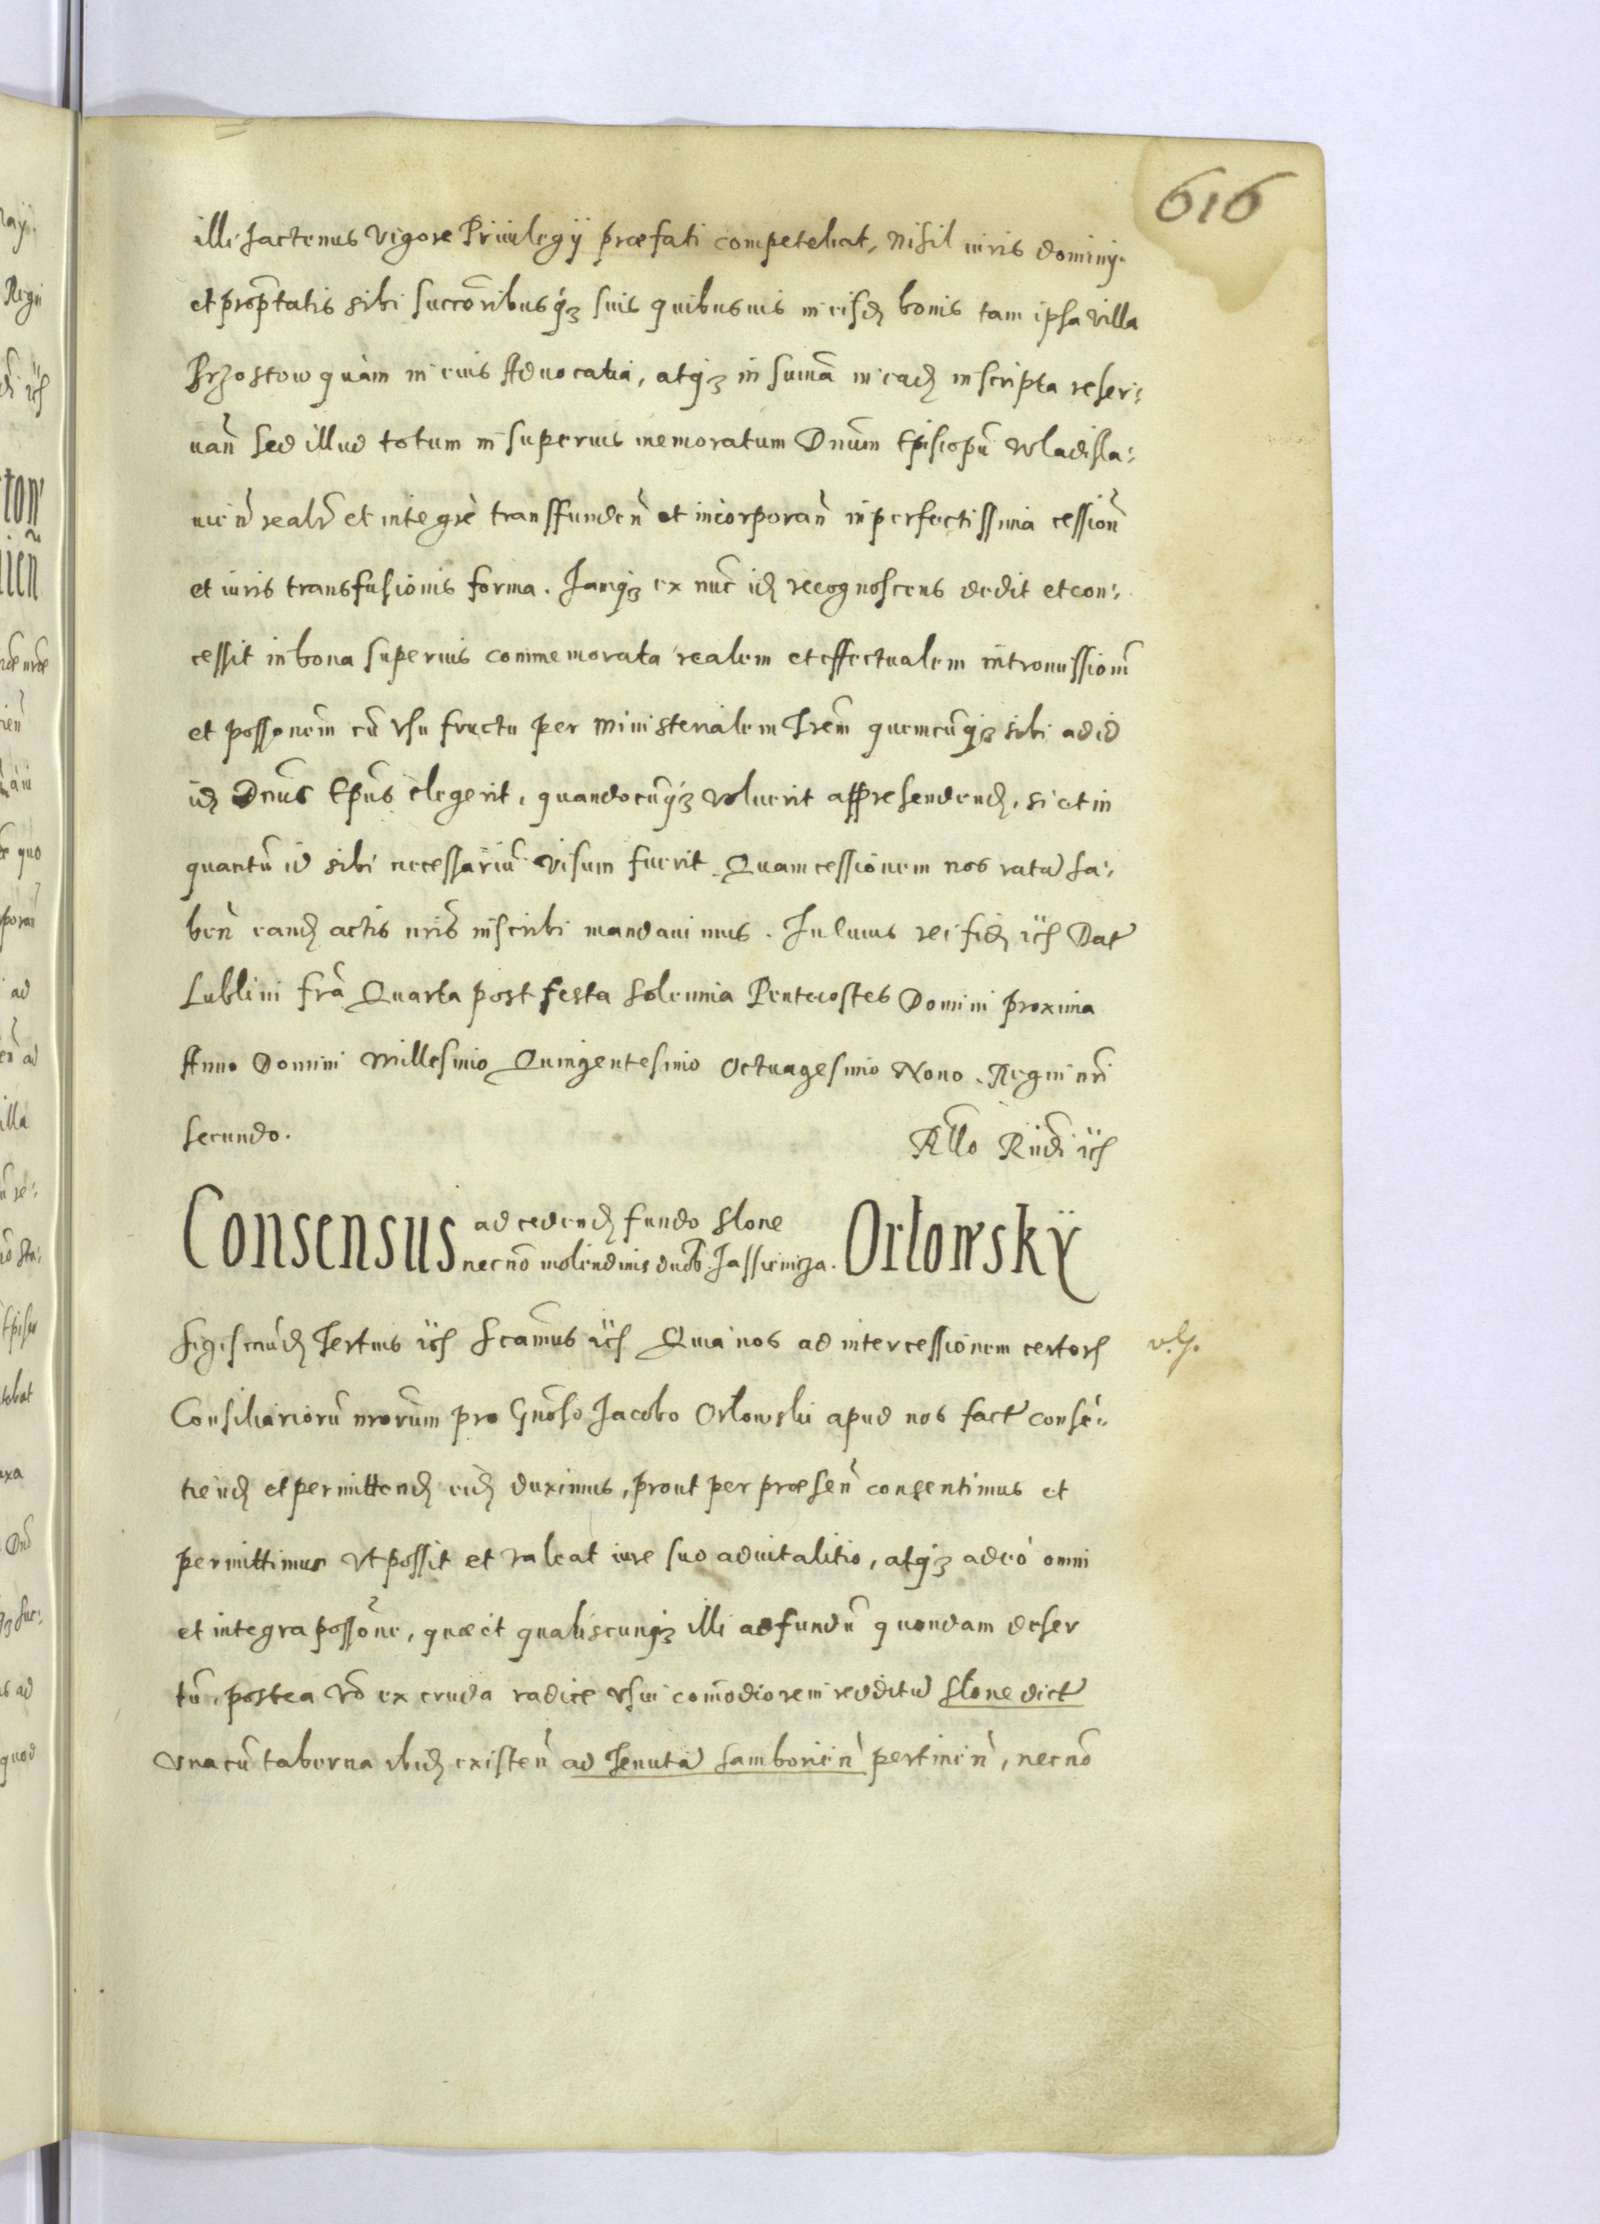 616
illi hactenus vigore Priuilegij præfati competebat, nihil iuris dominij
et proptatis sibi succoribusq3 suis quibusuis in eisd bonis tam ipsa villa
Brzostow quàm in eius Aduocatia, atq3 in sumã in ead inscripta reser:
uañ sed illud totum in superius memoratum Dnum Episcopũ Wladisla:
uieñ realr et integrè transffundeñ et incorporañ in perfectissima cessioñ
et iuris transfusionis forma. Iamq3 ex nunc id recognoscens dedit et con:
cessit in bona superius commemorata realem et effectualem intromissionm
et possonem cũ vsu fructu per ministerialem Trem quemcũq3 sibi ad id
id Dnus Epus elegerit, quandocũq3 voluerit apprehendend, si et in
quantũ id sibi necessariũ visum fuerit. Quam cessionem nos ratã ha:
beñ eand actis nris inscribi mandauimus. In cuius rei fid etc Dat
Lublini fra Quarta post festa solennia Pentecostes Domini proxima
Anno Domini Millesimo Quingentesimo Octuagesimo Nono. Regni nri
secundo.
Rllo Rndi etc
Consensus ad cedend fundo Slone necnõ molendinis duob Jassienicza. Orlowsky
Sigismũd Tertius etc Scamus etc Quia nos ad intercessionem certor
Consiliariorũ nrorum pro Gnoso Jacobo Orlowski apud nos fact consẽ:
tiend et permittend eid duximus, prout per præseñ consentimus et
permittimus vt possit et valeat iure suo aduitalitio, atq3 adeò omni
et integra possone, quæ et qualiscunq3 illi ad fundũ quondam deser
tũ, postea vo ex cruda radice vsui comodiorem redditũ Slone dict
vnacũ taberna ibid existeñ ad Tenutã Samborieñ pertineñ, necnõ